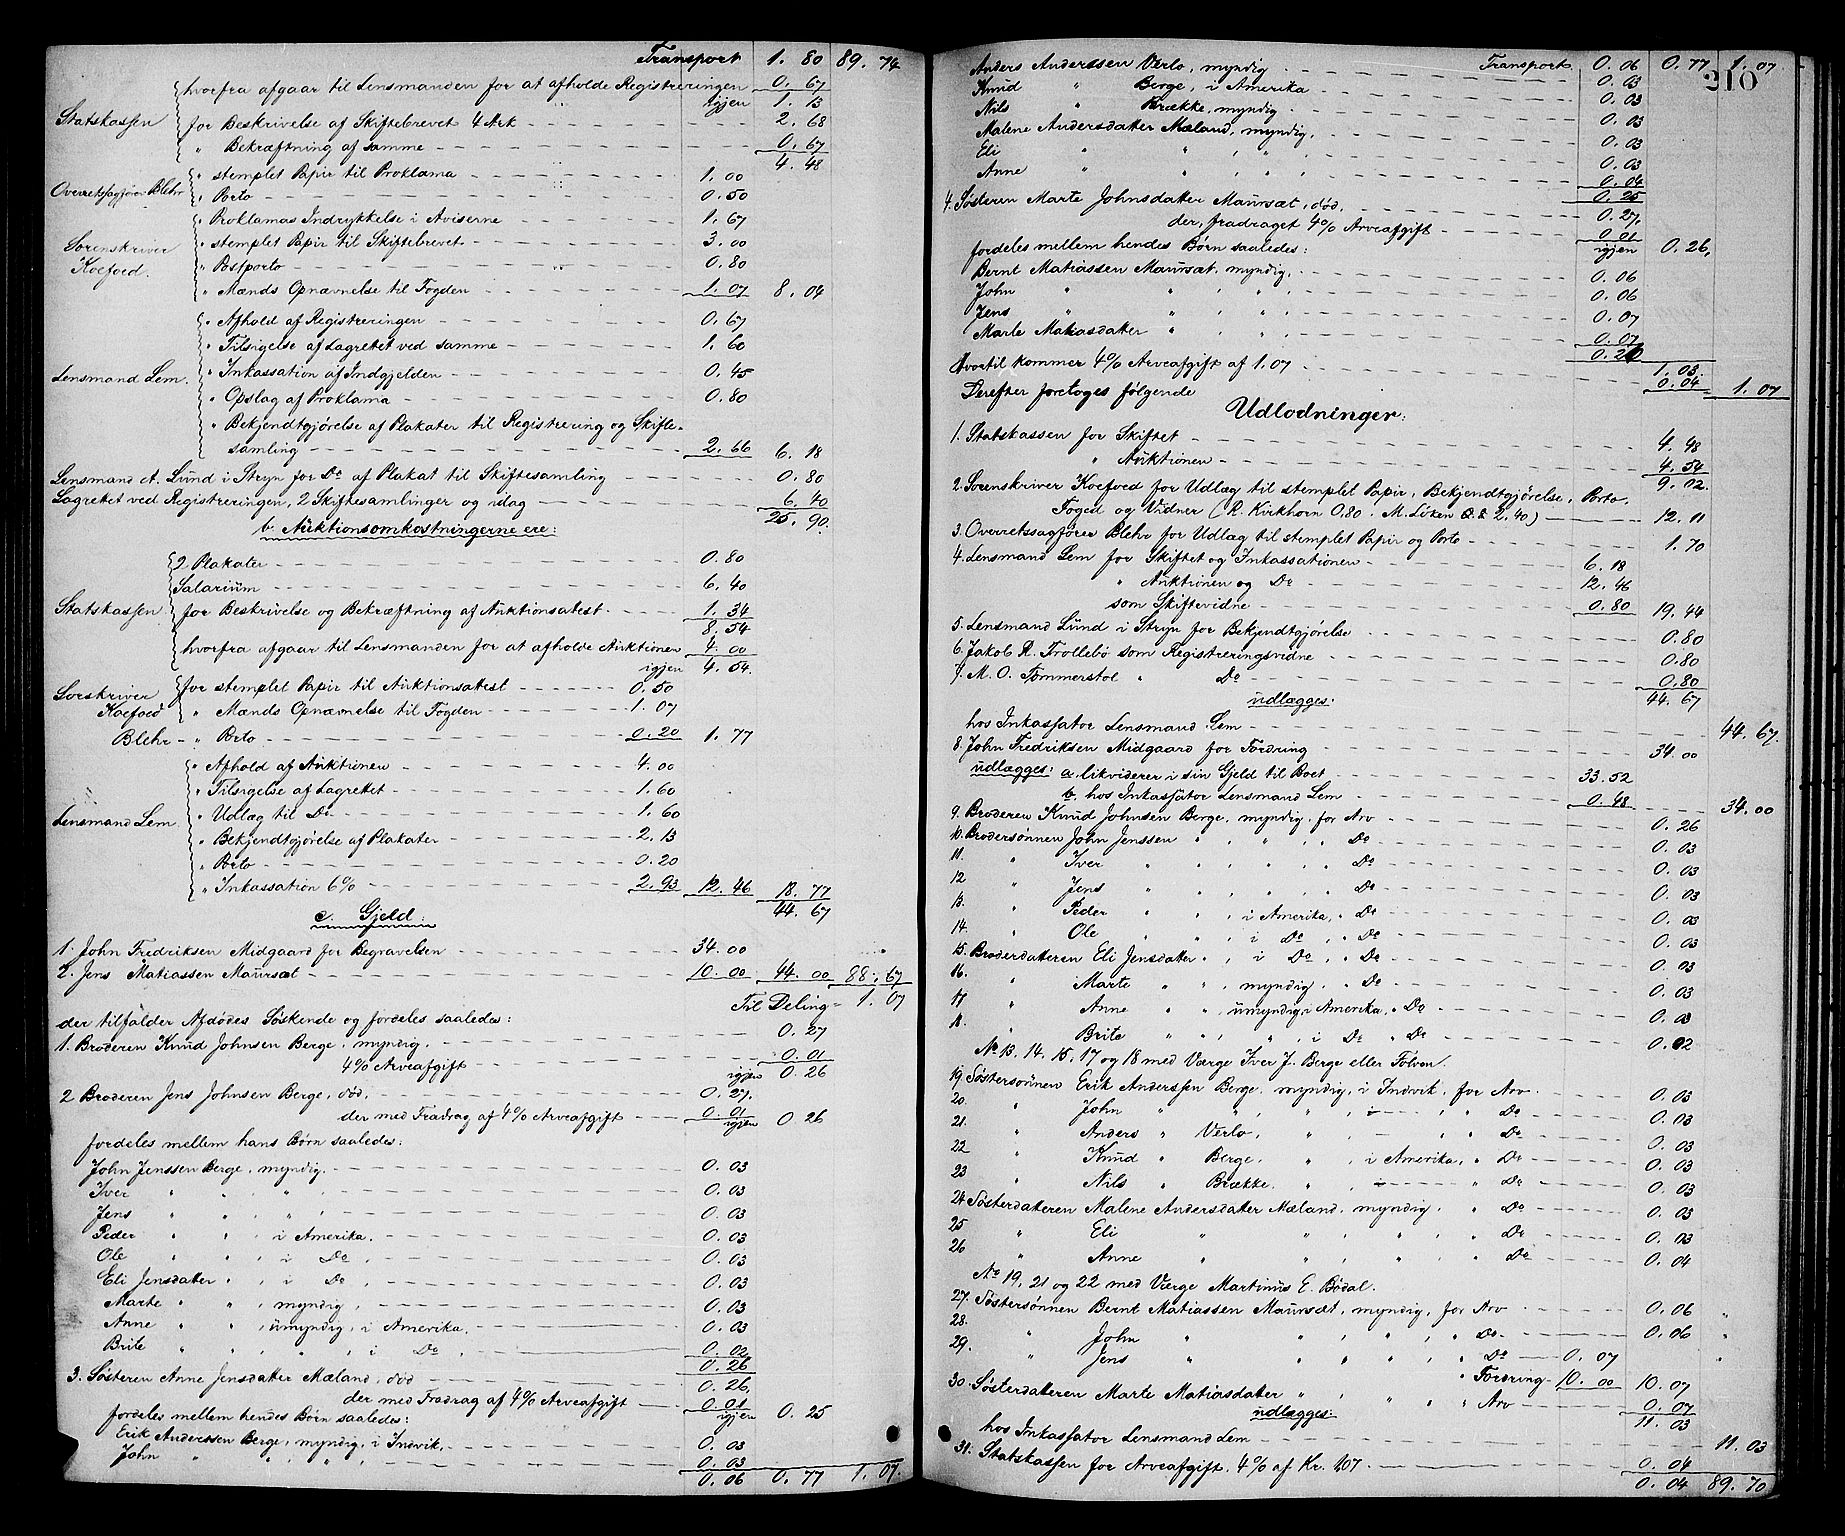 Transport 1. 80 89. 74
hvorfra afgaar til Lensmanden for at afholde Registreringen 0. 67
igjen 1. 13
Statskassen for Beskrivelse af Skiftebrevet 4 Ark 2. 68
" Bekræftning af samme 0. 67
4. 48
Overretssagfører Blehr " stemplet Papir til Proklama 1. 00
" Porto 0. 50
" Proklamas Indrykkelse i Aviserne 1. 67
Sorenskriver Koefoed. " stemplet Papir til Skiftebrevet 3. 00
" Postporto 0. 80
" Mænds Opnævnelse til Fogden 1. 07 8. 04
" Afhold af Registreringen 0. 67
" Tilsigelse af Lagrettet ved samme 1. 60
Lensmand Lem. " Inkassation af Indgjelden 0. 45
" Opslag af Proklama 0. 80
" Bekjendtgjørelse af Plakater til Registrering og Skifte-
samling 2. 66 6. 18
Lensmand A. Lund i Stryn for Do af Plakat til Skiftesamling 0. 80
Lagrettet ved Registreringen, 2 Skiftesamlinger og idag 6. 40
25. 90.
b. Auktionsomkostningerne ere:
2 Plakater 0. 80
Salarium 6. 40
Statskassen for Beskrivelse og Bekræftning af Auktionsatest 1. 34
8. 54
hvorfra afgaar til Lensmanden for at afholde Auktionen 4. 00
igjen 4. 54.
Sorskriver Koefoed for stemplet Papir til Auktionsatest 0. 50
" Mænds Opnævnelse til Fogden 1. 07
Blehr - " Porto 0. 20 1. 77
" Afhold af Auktionen 4. 00
" Tilsigelse af Lagrettet 1. 60
" Udlæg til Do 1. 60
Lensmand Lem. " Bekjendtgjørelse af Plakater 2. 13
" Porto 0. 20
" Inkassation 6% 2. 93 12. 46 18. 77
44. 67
c. Gjeld:
1. John Fredriksen Midgaard for Begravelsen 34. 00
2. Jens Matiassen Maursæt 10. 00 44. 00 88. 67
Til Deling = 1. 07
der tilfalder Afdødes Søskende og fordeles saaledes:
1. Broderen Knud Johnsen Berge, myndig. 0. 27
4% Arveafgift 0. 01
igjen 0. 26
2 Broderen Jens Johnsen Berge, død, 0. 27,
der med Fradrag af 4% Arveafgift 0. 01
igjen 0 26
fordeles mellem hans Børn saaledes:
John Jenssen Berge, myndig. 0. 03
Iver " " , " , 0. 03
Jens " " , " , 0. 03
Peder " " , i Amerika. 0. 03
Ole " " , i Do , 0. 03
Eli Jensdatter " , i Do , 0. 03
Marte " " , myndig, 0. 03
Anne " " , umyndig, i Amerika, 0. 03
Brite " " , " , i Do , 0. 02
0. 26
3. Søsteren Anne Jensdatter Mæland, død 0. 26,
der med Fradrag af 4% Arveafgift 0. 01
igjen 0. 25
fordeles mellem hendes Børn saaledes:
Erik Anderssen Berge, myndig, i Indvik, 0. 03
John " " , " , " , 0. 03
0. 06 0. 77 1. 07.
210
Transport 0. 06 0. 77 1. 07
Anders Anderssen Verlo, myndig 0. 03
Knud " Berge, i Amerika 0. 03
Nils " Brække, myndig 0. 03
Malene Andersdatter Mæland, myndig, 0. 03
Eli " " , " , 0. 03
Anne " " , " , 0. 04
0. 25
4. Søsteren Marte Johnsdatter Maursæt, død, 0. 27,
der, fradraget 4% Arveafgift 0. 01
igjen 0. 26,
fordeles mellem hendes Børn saaledes:
Bernt Matiassen Maursæt, myndig, 0. 06
John " " , " , 0. 06
Jens " " , " , 0. 07
Marte Matiasdatter " , " , 0. 07
0. 26
1. 03.
Hvortil kommer 4% Arveafgift af 1. 07 0. 04 1. 07
Derefter foretoges følgende
Udlodninger:
1. Statskassen for Skiftet 4. 48
" Auktionen 4. 54
9. 02.
2. Sorenskriver Koefoed for Udlæg til stemplet Papir, Bekjendtgjørelse, Porto,
Foged og Vidner (R. Kirkhorn 0.80. M. Löken 2.40) 12. 11
3. Overretssagfører Blehr for Udlæg til stemplet Papir og Porto 1. 70
4. Lensmand Lem for Skiftet og Inkassationen 6. 18
" Auktionen og Do 12. 46
som Skiftevidne 0. 80 19. 44
5. Lensmand Lund i Stryn for Bekjendtgjørelse 0. 80
6. Jakob R. Trollebö som Registreringsvidne 0. 80
7. M. O. Tömmerstol " Do 0. 80
44. 67
udlægges:
hos Inkassator Lensmand Lem 44. 67.
8. John Fredriksen Midgaard for Fordring 34. 00
udlægges: a. likviderer i sin Gjeld til Boet 33. 52
b. hos Inkassator Lensmand Lem 0. 48 34. 00
9. Broderen Knud Johnsen Berge, myndig, for Arv 0. 26
10. Brodersønnen John Jenssen " , " , " Do 0. 03
11. " Iver " " , " , " Do 0. 03
12 " Jens " " , " , " Do 0. 03
13. " Peder " " , i Amerika, " Do 0. 03
14. " Ole " " , i Do , " Do 0. 03
15. Broderdatteren Eli Jensdatter " , i Do , " Do 0. 03
16. " Marte " " , myndig, " Do 0. 03
17 " Anne " " , umyndig, i Amerika, " Do 0. 03
18. " Brite " " , " , i Do " Do 0. 02
No 13, 14, 15, 17 og 18 med Værge Iver J. Berge eller Folven.
19. Søstersønnen Erik Anderssen Berge, myndig, i Indvik, for Arv 0. 03
20. " John " " , " , i — , " Do 0. 03
21. " Anders " Verlo, " , — , " Do 0. 03
22 " Knud " Berge, " , i Amerika, " Do 0. 03
23 " Nils " Brække, " , — " Do 0. 03
24 Søsterdatteren Malene Andersdatter Mæland, myndig, " Do 0. 03
25 " Eli " " , " , " Do 0. 03
26 " Anne " " , " , " Do 0. 04
No 19, 21 og 22 med Værge Martinus E. Bödal.
27. Søstersønnen Bernt Matiassen Maursæt, myndig, for Arv 0. 06
28. " John " " , " , " Do 0. 06
29. " Jens " " , " , " Do 0. 07
" Fordring 10. 00 10. 07
30. Søsterdatteren Marte Matiasdatter " , " , " Arv 0. 07
11. 03
udlægges:
hos Inkassator Lensmand Lem 11. 03
31. Statskassen for Arveafgift, 4% af Kr. 1.07. 0. 04
0. 04 89. 70